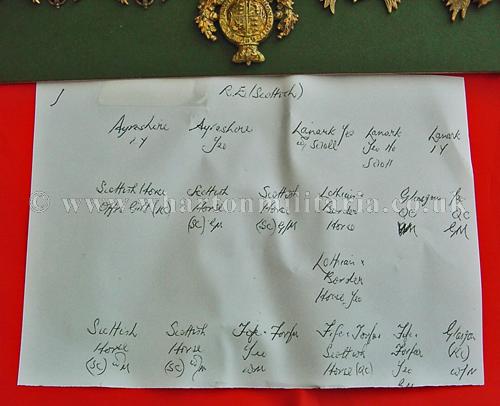 R.E. (Scottish)
Ayrshire Ayrshire Lanark Yeo Lanark Lanark
IY Yeo w/ Scroll Yeo No IY
Scroll
© www.whartonmilitaria.co.uk
Scottish Horse Scottish Scottish Lothian Glasgow Yeo
Horse Horse Border QC QC
(SC) GM (SC) G/M Horse GM
Lothian &
Border
Horse Yeo
Scottish Scottish Fife & Forfar Fife & Forfar Fife Glasgow
Horse Horse Yeo Scottish Forfar (KC)
(SC) WM (SC) WM WM Horse (KC) Yeo W/M
GM